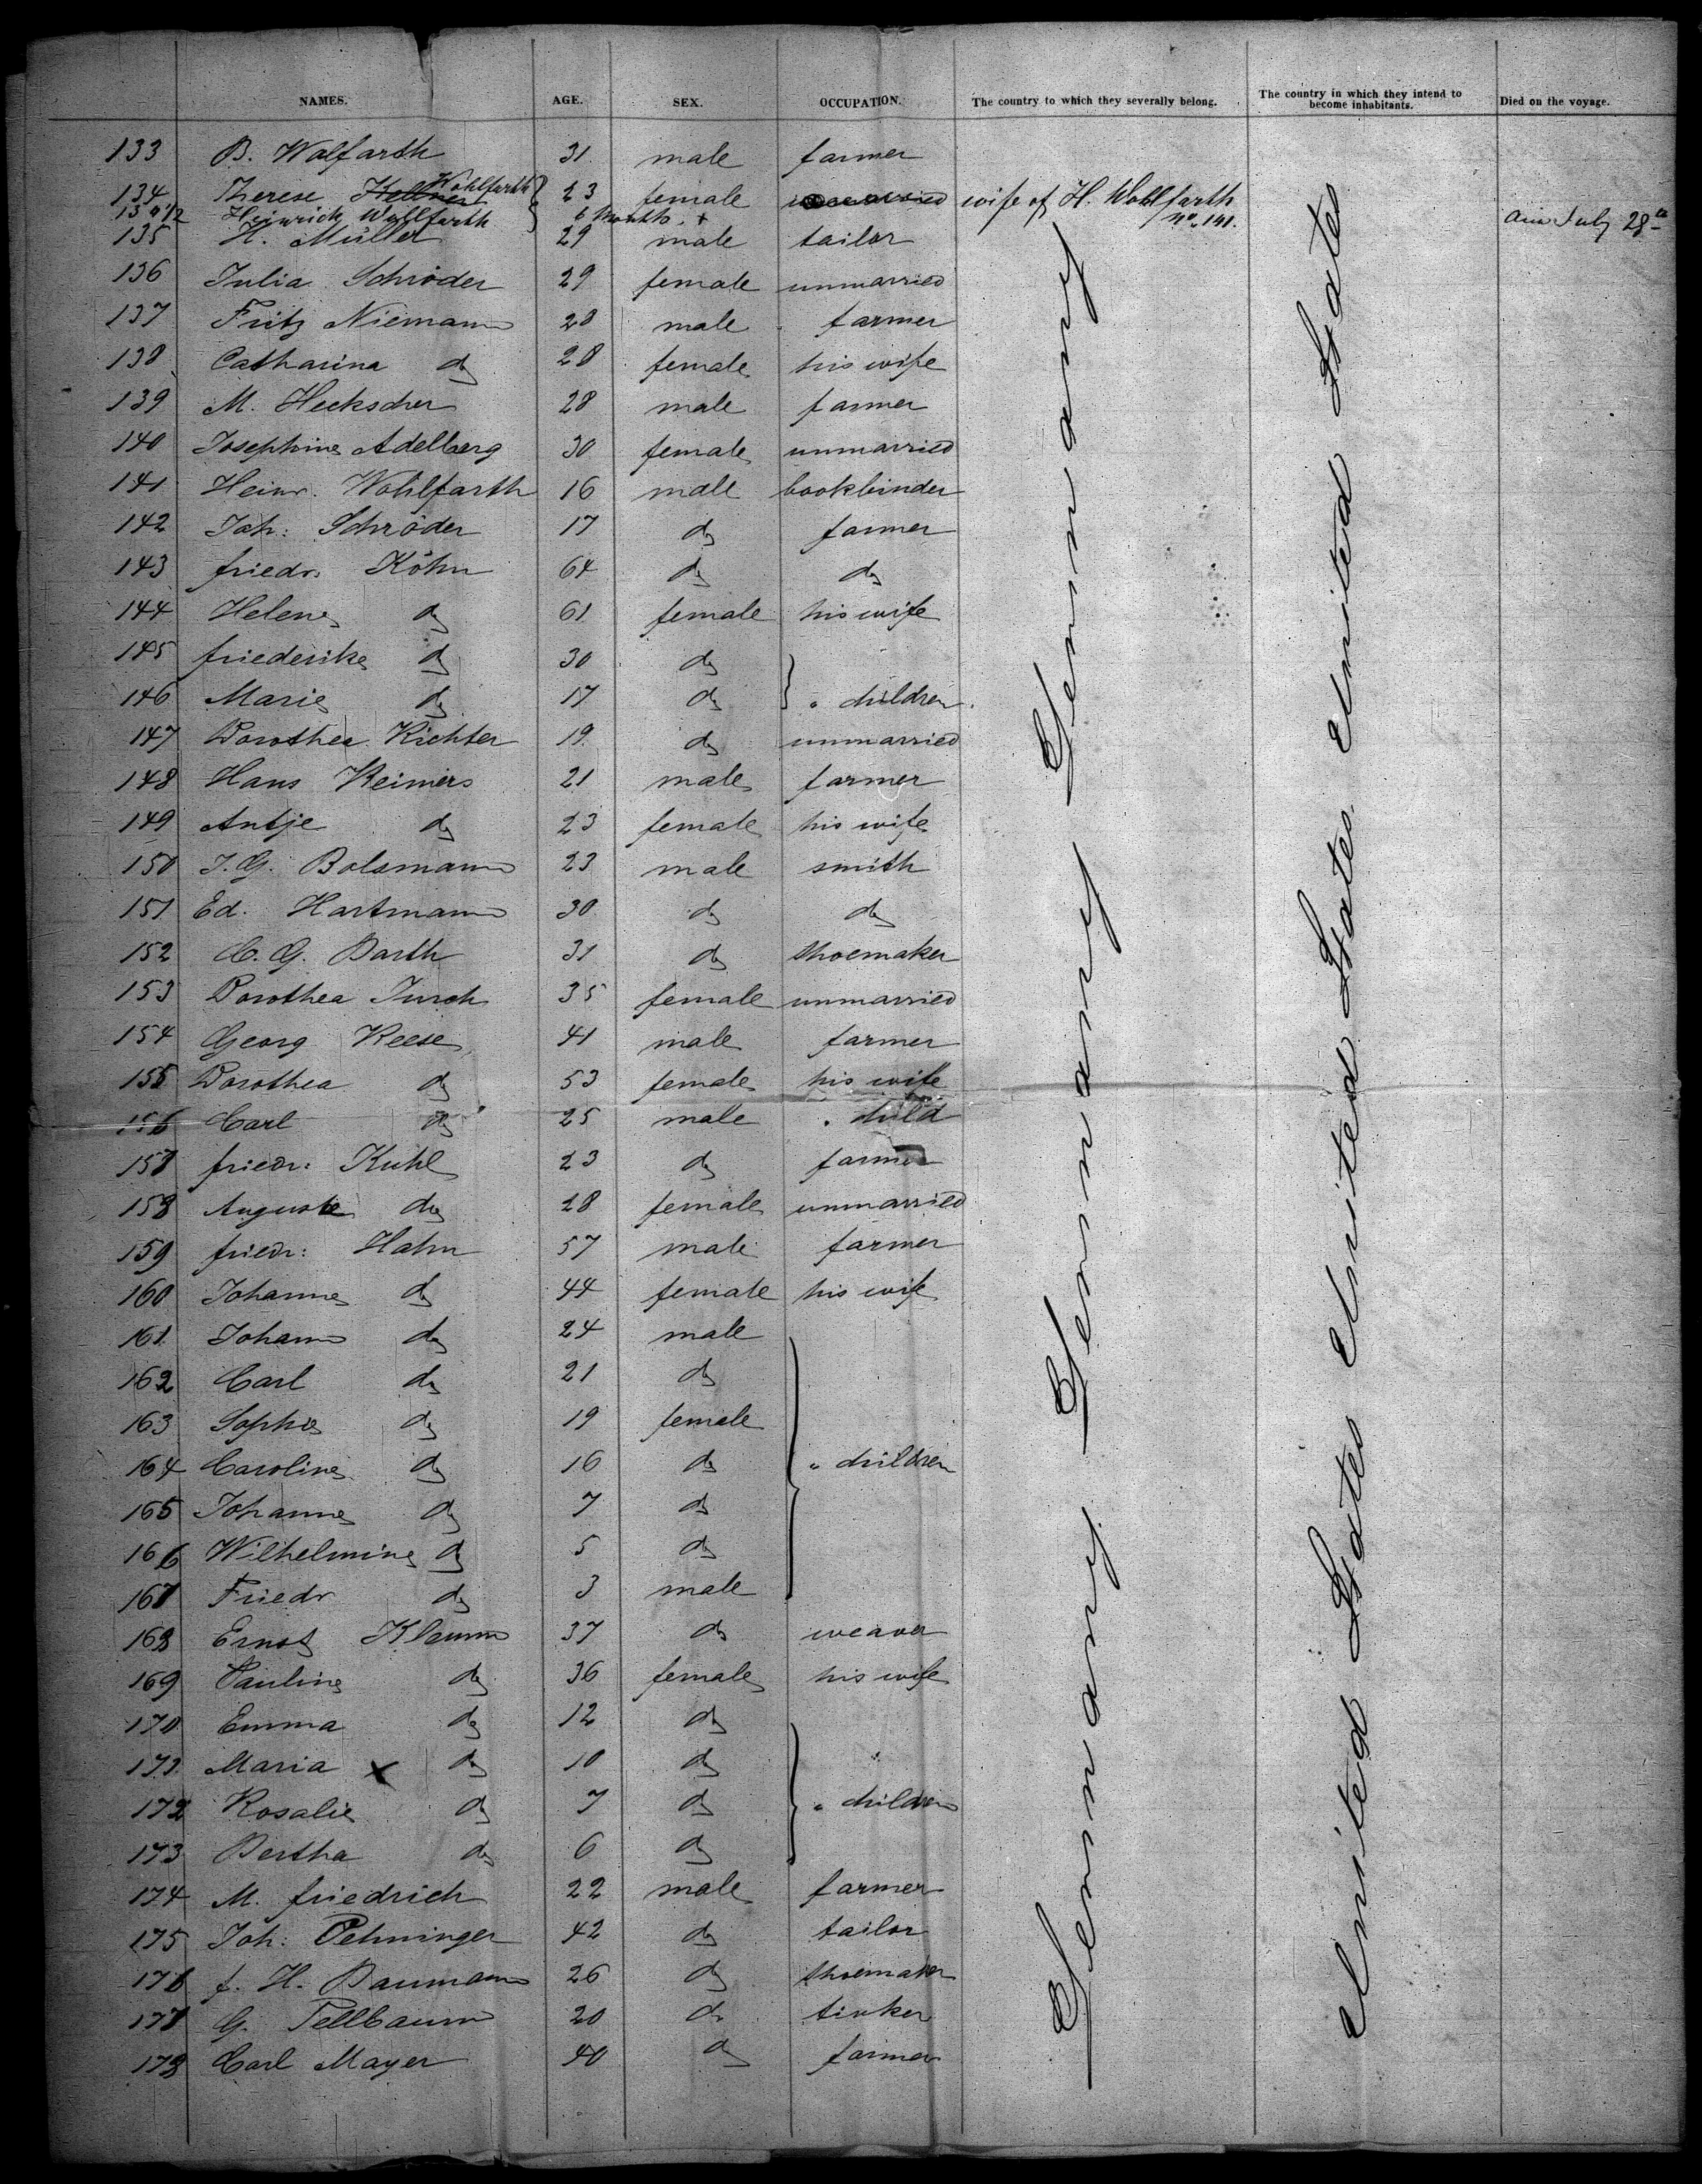 NAMES. AGE. SEX. OCCUPATION. The country to which they severally belong. The country in which they intend to become inhabitants. Died on the voyage.
133 B. Wolfarth 31 male farmer
134 Therese Wohlfarth 23 female unmarried wife of H. Wohlfarth
134 1/2 Heinrich Wohlfarth 6 months + No. 141. July 28th
135 H. Müller 29 male tailor
136 Julia Schröder 29 female unmarried
137 Fritz Niemann 28 male farmer
138 Catharina do 28 female his wife
139 M. Heckscher 28 male farmer
140 Josephine Adelberg 30 female unmarried
141 Heinr. Wohlfarth 16 male bookbinder
142 Joh: Schröder 17 do farmer
143 friedr. Köhn 64 do do
144 Helene do 61 female his wife
145 friederike do 30 do
146 Marie do 17 do " children
147 Dorothea Richter 19 do unmarried
148 Hans Reimers 21 male farmer
149 Antje do 23 female his wife
150 J. G. Bolsmann 23 male smith
151 Ed. Hartmann 30 do do
152 C. G. Barth 31 do shoemaker
153 Dorothea Jursch 35 female unmarried
154 Georg Reese 41 male farmer
155 Dorothea do 53 female his wife
156 Carl do 25 male " child
157 friedr: Kuhl 23 do farmer
158 Auguste do 28 female unmarried
159 friedr: Hahn 57 male farmer
160 Johanne do 44 female his wife
161 Johann do 24 male
162 Carl do 21 do
163 Sophie do 19 female
164 Caroline do 16 do " children
165 Johanne do 7 do
166 Wilhelmine do 5 do
167 Friedr do 3 male
168 Ernst Klemm 37 do weaver
169 Pauline do 36 female his wife
170 Emma do 12 do
171 Maria x do 10 do
172 Rosalie do 7 do " children
173 Bertha do 6 do
174 M. friedrich 22 male farmer
175 Joh: Oehninger 42 do tailor
176 f. H. Baumann 26 do shoemaker
177 G. Tellbaum 20 do tinker
178 Carl Mayer 40 do farmer
Germany Germany Germany
United States United States United States